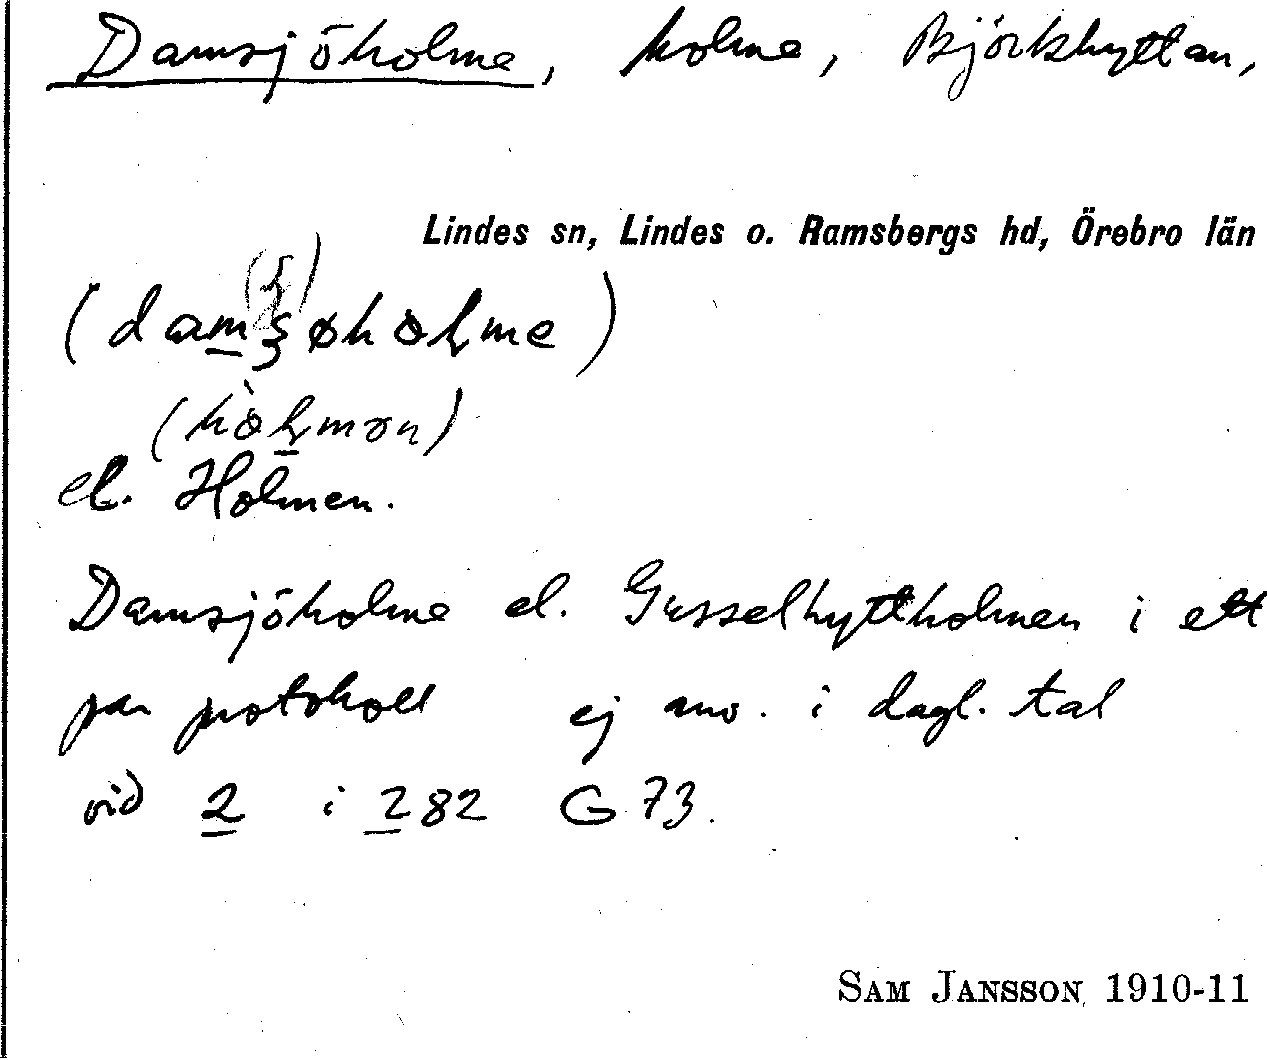 Damsjöholme, holme, Björkhyttan,
Lindes sn, Lindes o. Ramsbergs hd, Örebro län
el. Holmen.
Damsjöholme el. Gusselhyttholmen i ett
par protokoll ej anv. i dagl. tal
vid 2 i 282 G 73.
SAM JANSSON 1910-11